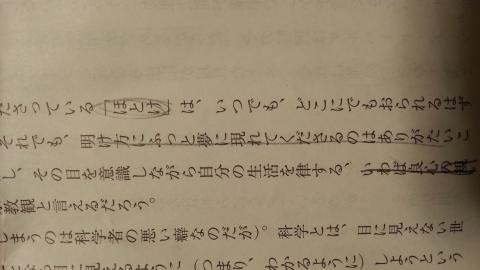 ださっているほとけは、いつでも、どこにでもおられるはず
それでも、明け方にふっと夢に現れてくださるのはありがたいこ
し、その目を意識しながら自分の生活を律する、いわば良心の
教観と言えるだろう。
しまうのは科学者の悪い癖なのだが)。科学とは、目に見えない世
目に見えるように(つまり、わかるように)しようという